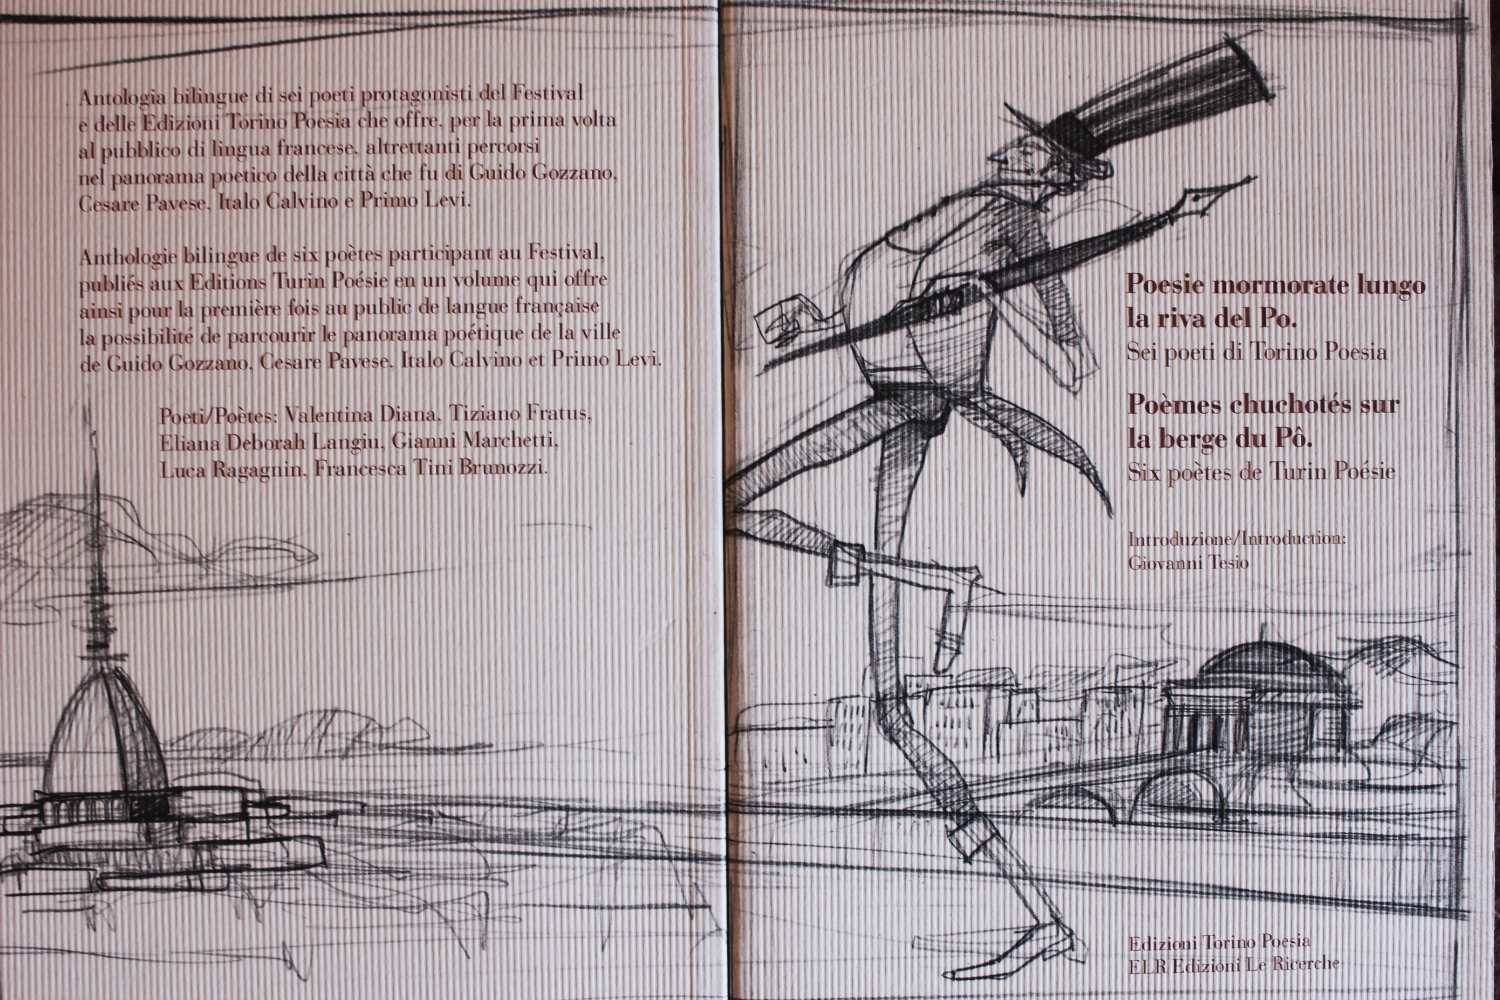 Antologia bilingue di sei poeti protagonisti del Festival
e delle Edizioni Torino Poesia che offre, per la prima volta
al pubblico di lingua francese, altrettanti percorsi
nel panorama poetico della città che fu di Guido Gozzano,
Cesare Pavese, Italo Calvino e Primo Levi.
Anthologie bilingue de six poètes participant au Festival,
publiés aux Editions Turin Poésie en un volume qui offre
ainsi pour la première fois au public de langue française
la possibilité de parcourir le panorama poétique de la ville
de Guido Gozzano, Cesare Pavese, Italo Calvino et Primo Levi.
Poeti/Poètes: Valentina Diana, Tiziano Fratus,
Eliana Deborah Langiu, Gianni Marchetti,
Luca Ragagnin, Francesca Tini Brunozzi.
Poesie mormorate lungo
la riva del Po.
Sei poeti di Torino Poesia
Poèmes chuchotés sur
la berge du Pô.
Six poètes de Turin Poésie
Introduzione/Introduction:
Giovanni Tesio
Edizioni Torino Poesia
ELR Edizioni Le Ricerche